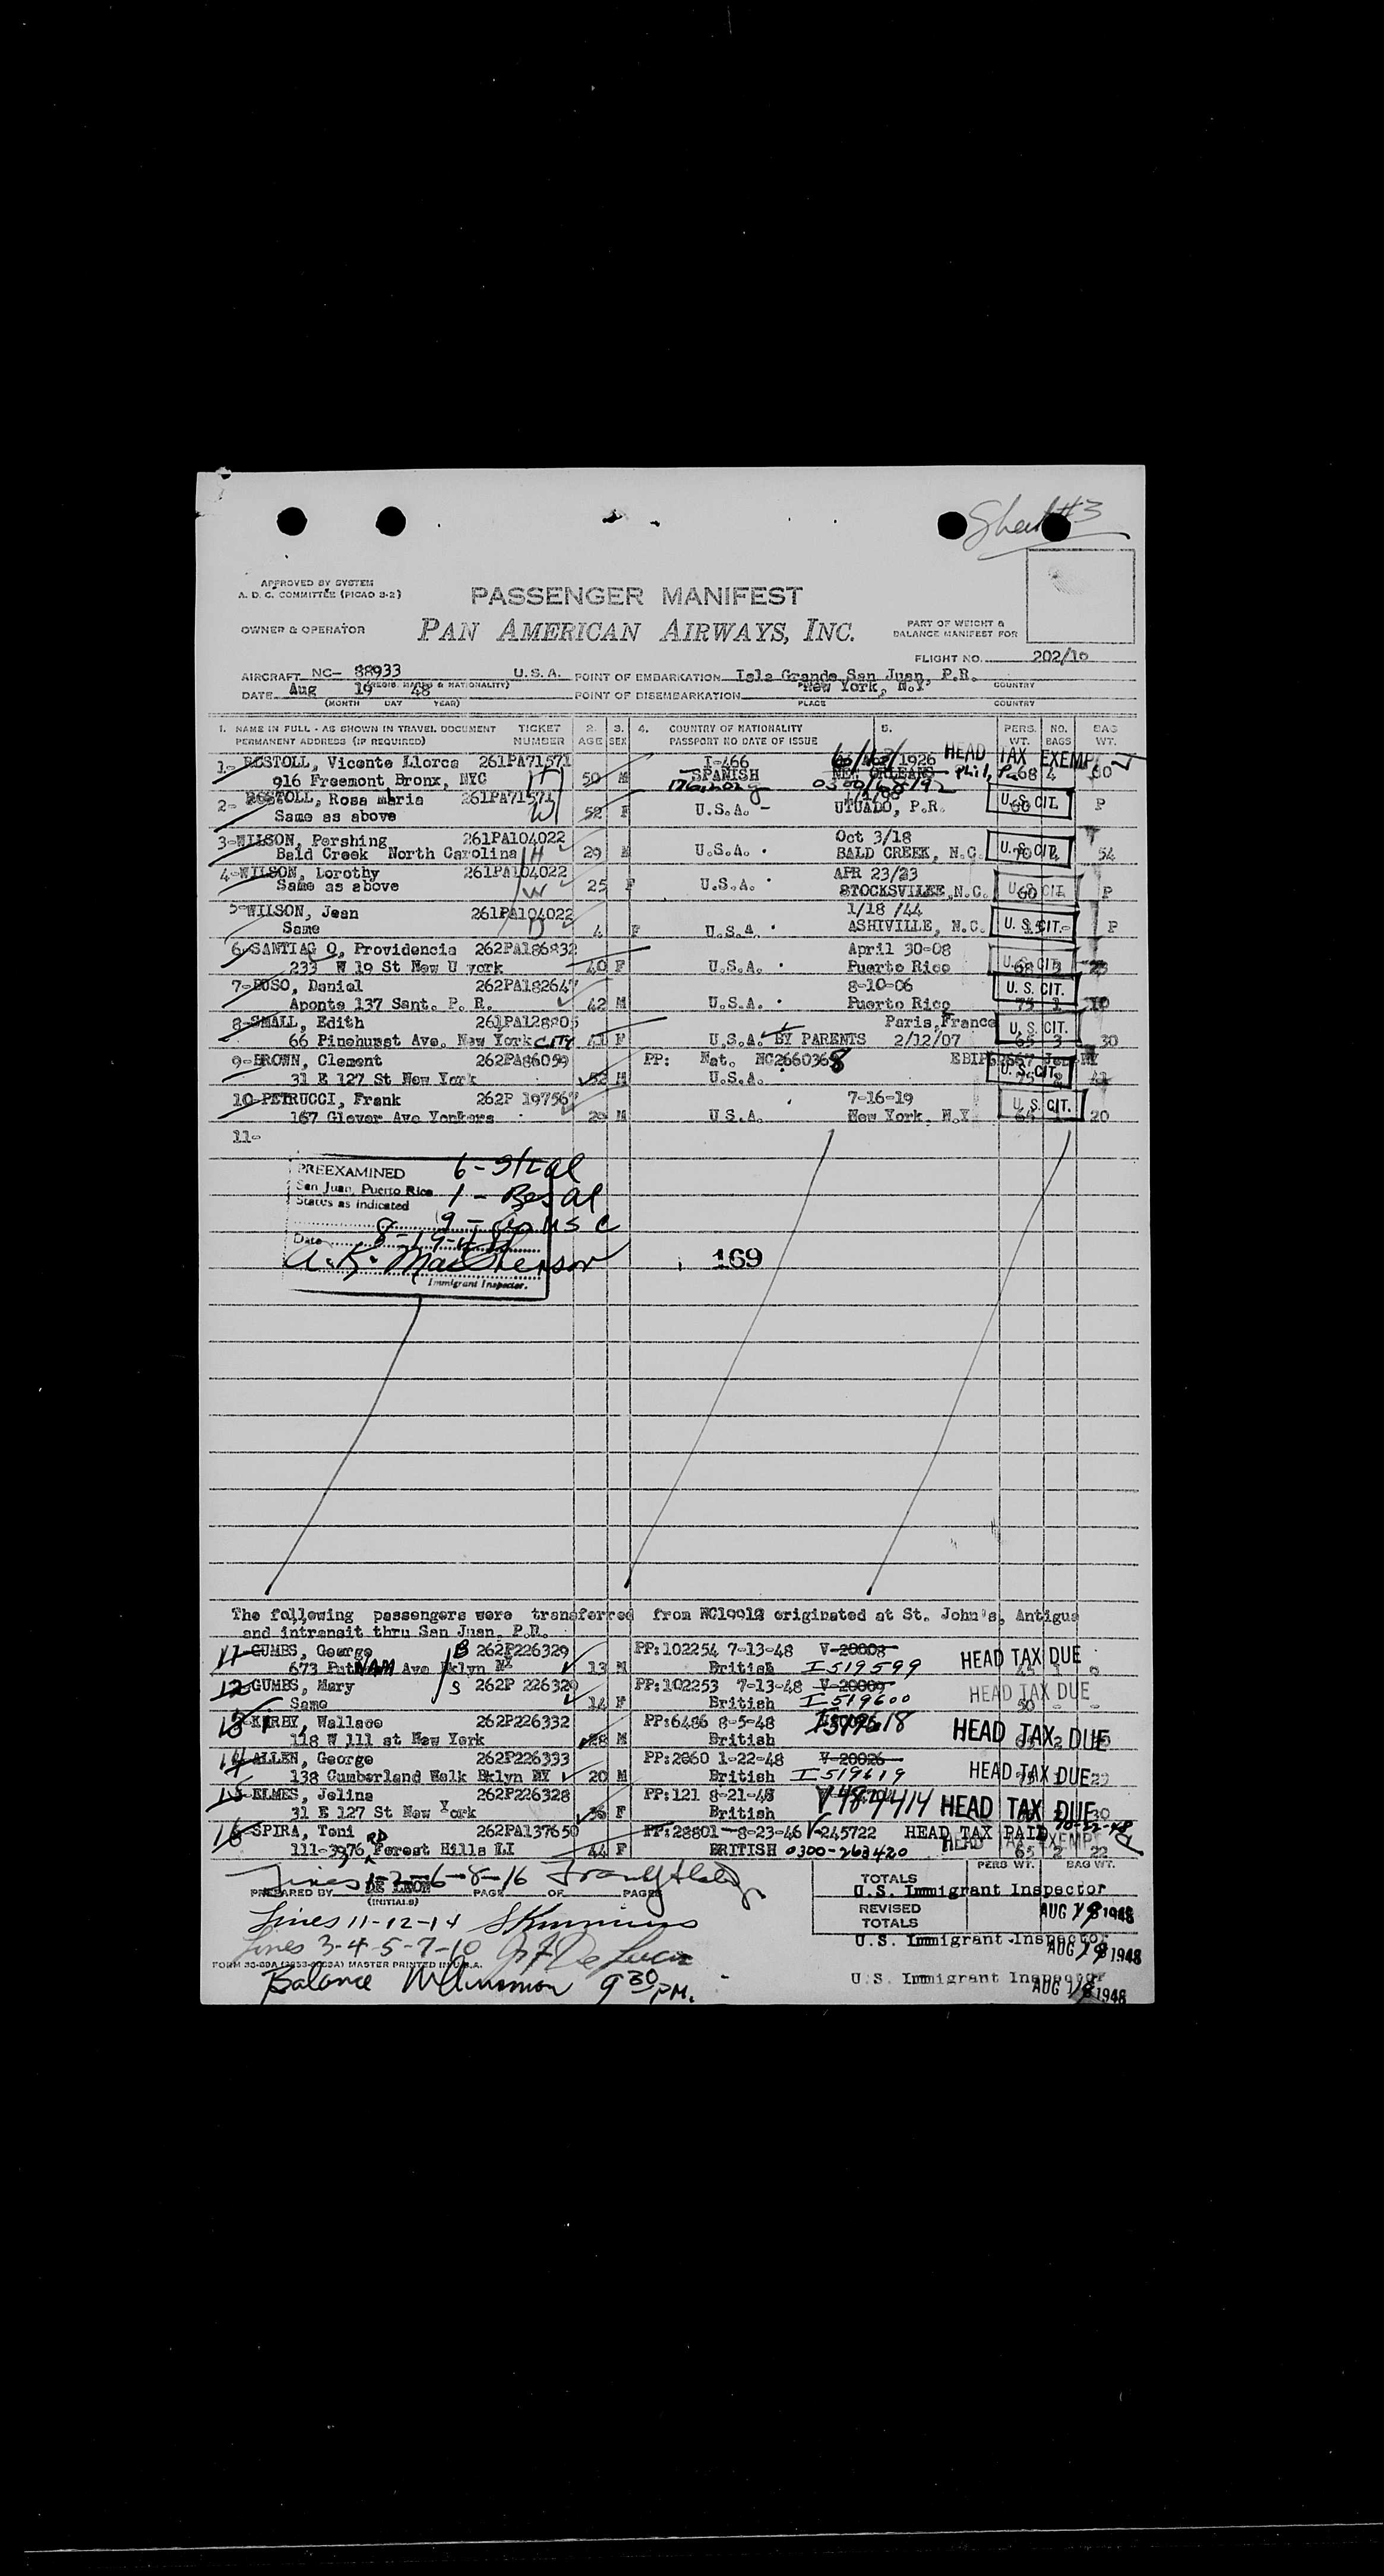 Sheet #3
APPROVED BY SYSTEM
A. D. C. COMMITTEE (PICAO 3-2)
PASSENGER MANIFEST
OWNER & OPERATOR
PAN AMERICAN AIRWAYS, INC.
PART OF WEIGHT &
BALANCE MANIFEST FOR
FLIGHT NO. 202/18
AIRCRAFT NC- 88933 U.S.A. POINT OF EMBARKATION Isla Grande San Juan, P.R.
(REGIS. MARKS & NATIONALITY) PLACE COUNTRY
DATE Aug 19 48 POINT OF DISEMBARKATION New York, N.Y
(MONTH DAY YEAR) PLACE COUNTRY
1. NAME IN FULL - AS SHOWN IN TRAVEL DOCUMENT TICKET 2. 3. 4. COUNTRY OF NATIONALITY 5. PERS. NO. BAG
PERMANENT ADDRESS (IF REQUIRED) NUMBER AGE SEX PASSPORT NO DATE OF ISSUE WT. BAGS WT.
1- BOSTOLL, Vicente Llorca 261PA71571 I-466 1926 HEAD TAX EXEMPT
916 Freemont Bronx, NYC H 50 M SPANISH NEW ORLEANS Phil, Pa 68 4 60
2- BOSTOLL, Rosa maria 261PA71571
Same as above W 52 F U.S.A. - UTUADO, P.R. U.S. CIT. P
3-WILSON, Pershing 261PA104022 Oct 3/18
Bald Creek North Carolina H 29 M U.S.A. BALD CREEK, N.C. U.S. CIT. 54
4-WILSON, Lorothy 261PA104022 APR 23/23
Same as above W 25 F U.S.A. STOCKSVILEE, N.C. U.S. CIT. P
5-WILSON, Jean 261PA104022 1/18 /44
Same D 4 F U.S.A. ASHIVILLE, N.C. U.S. CIT. P
6-SANTIAG O, Providencia 262PA186832 April 30-08
233 W 19 St New U york 40 F U.S.A. Puerto Rico U.S. CIT.
7-BUSO, Daniel 262PA182647 8-10-06
Aponte 137 Sant. P. R. 42 M U.S.A. Puerto Rico U.S. CIT. 75 1 10
8-SMALL, Edith 261PA128805 Paris, France
66 Pinehurst Ave. New York CITY 41 F U.S.A. BY PARENTS 2/12/07 U.S. CIT. 65 3 30
9-BROWN, Clement 262PA86059 PP: Nat. NO2660368
31 E 127 St New York 52 M U.S.A. U.S. CIT. 75 2 41
10-PETRUCCI, Frank 262P 197567 7-16-19
167 Glover Ave Yonkers 29 M U.S.A. New York, N.Y U.S. CIT. 20
11-
PREEXAMINED
San Juan, Puerto Rico
Status as indicated
6-
1-
9- as USC
Date 8-19-48
A. K. MacPherson
Immigrant Inspector.
169
The following passengers were transferred from NC19912 originated at St. John's, Antigua
and intransit thru San Juan, P.R.
11-GUMBS, George B 262P226329 PP:102254 7-13-48 V-20008 HEAD TAX DUE
673 PutNAM Ave Bklyn NY 13 M British I 519599
12-GUMBS, Mary S 262P 226329 PP:102253 7-13-48 V-20009 HEAD TAX DUE
Same 14 F British I 519600 50 - -
13-KIRBY, Wallace 262P226332 PP:6486 8-5-48 HEAD TAX DUE
118 W 111 st New York 28 M British
14-ALLEN, George 262P226333 PP:2860 1-22-48 V-20026 HEAD TAX DUE
138 Cumberland Walk Bklyn NY 20 M British I 519619
15-ELMES, Jelina 262P226328 PP:121 8-21-48 V 4874414 HEAD TAX DUE
31 E 127 St New York 36 F British 30
16 SPIRA, Toni 262PA137650 PP:28801-8-23-46 V-245722 HEAD TAX PAID
111-3976 RD Forest Hills LI 44 F BRITISH 0300-263420 65 2 22
Lines 1-2-6-8-16
PREPARED BY DE LEON PAGE OF PAGES
(INITIALS)
PERS WT. BAG WT.
TOTALS
U.S. Immigrant Inspector
REVISED
TOTALS
AUG 19 1948
Lines 11-12-14
U.S. Immigrant Inspector
AUG 19 1948
Lines 3-4-5-7-10
MASTER PRINTED IN U.S.A.
Balance 9 30 PM.
U.S. Immigrant Inspector
AUG 19 1948